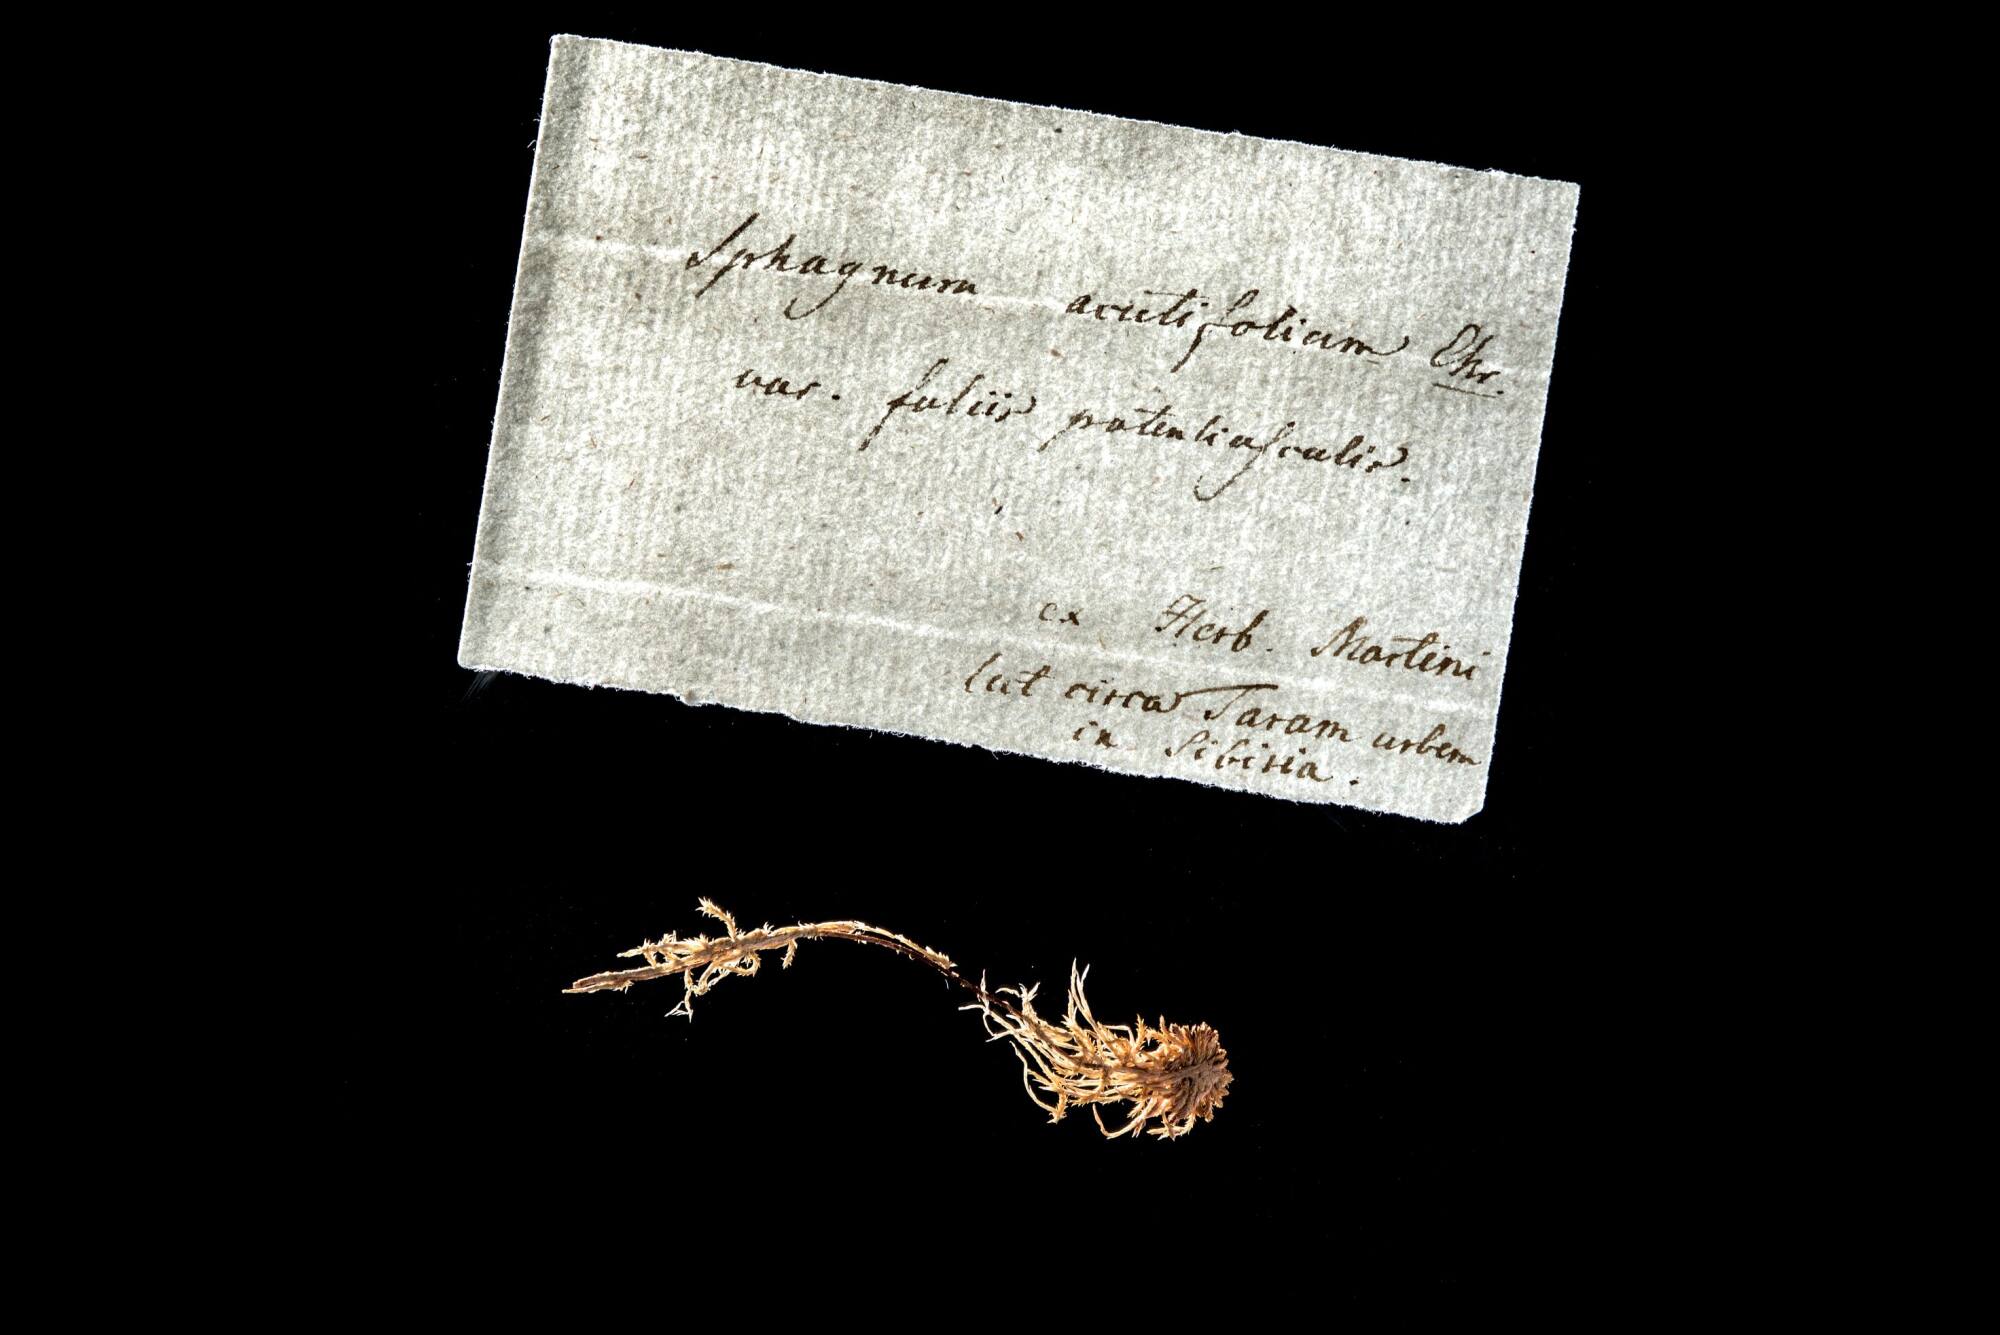 Sphagnum acutifolium Ehr.
var. foliis patentiusculis.
ex Herb. Martini
lat circa Taram urbem
in Sibiria.